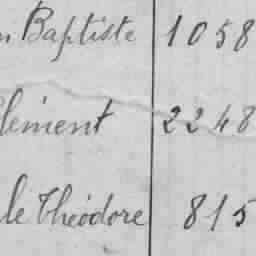 n Baptiste 1058
lément 2248
le Théodore 815